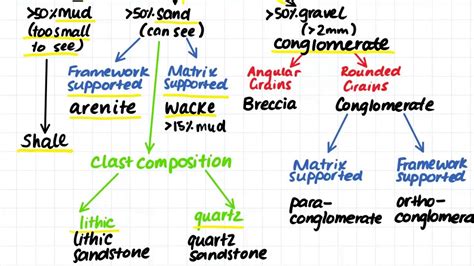 >50% mud
(too small
to see)
Shale
>50% sand
(can see)
Framework
supported
arenite
Matrix
supported
wacke
>15% mud
clast composition
lithic
lithic
sandstone
quartz
quartz
sandstone
>50% gravel
(>2mm)
conglomerate
Angular
Grains
Breccia
Rounded
Grains
Conglomerate
Matrix
supported
para-
conglomerate
Framework
supported
ortho-
conglomera